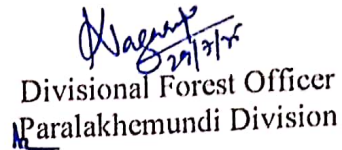 29/7/25
Divisional Forest Officer
Paralakhemundi Division